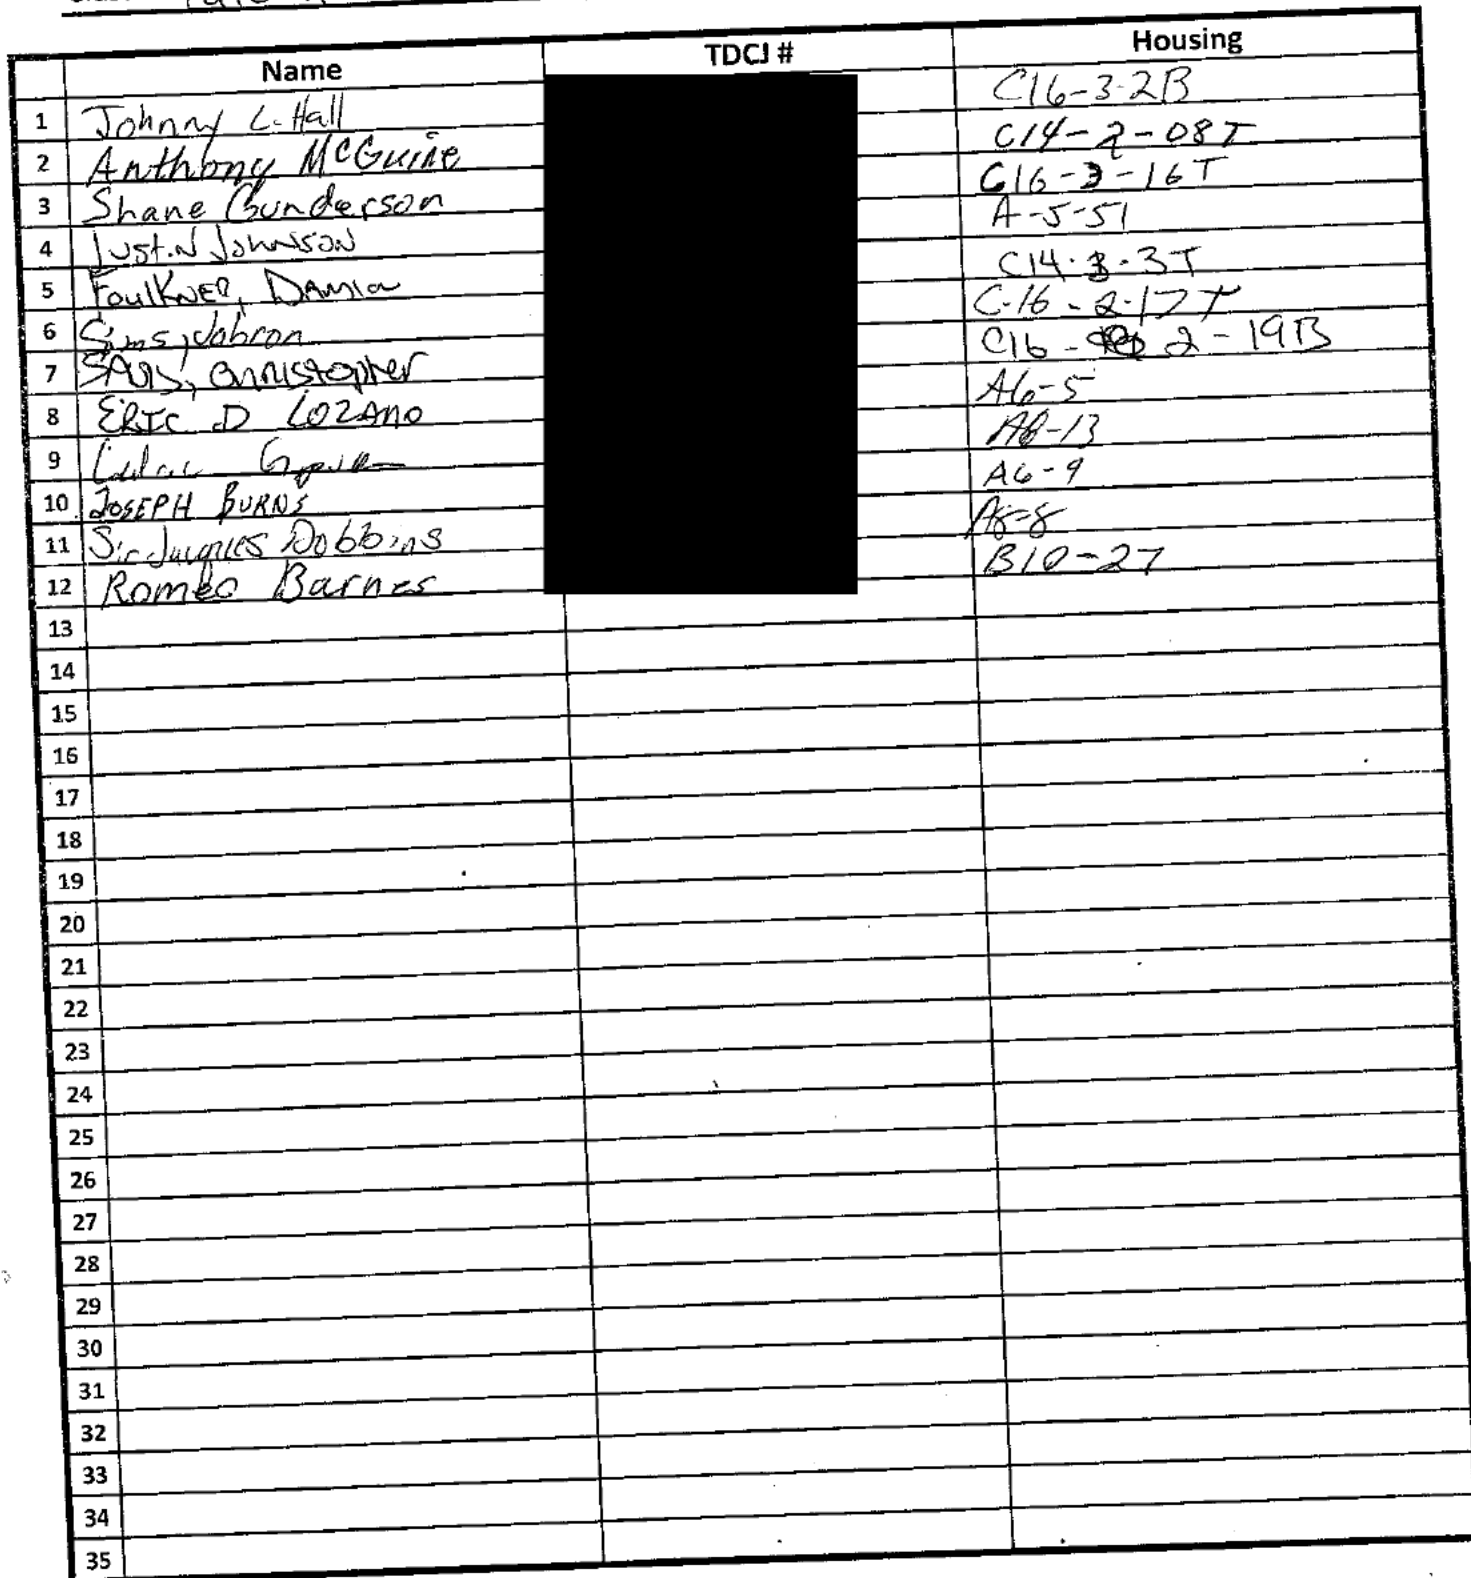 Name TDCJ # Housing
1 Johnny L. Hall C16-3-2B
2 Anthony McGuire C14-2-08T
3 Shane Gunderson C16-3-16T
4 Justin Johnson A-5-51
5 Faulkner, Damia C14-3-3T
6 Sims, Jabron C-16-2-17T
7 Christopher C16-2-19B
8 ERIC D LOZANO A6-5
9 A8-13
10 JOSEPH BURNS A6-9
11 Sir Jacques Dobbins A8-8
12 Romeo Barnes B10-27
13
14
15
16
17
18
19
20
21
22
23
24
25
26
27
28
29
30
31
32
33
34
35